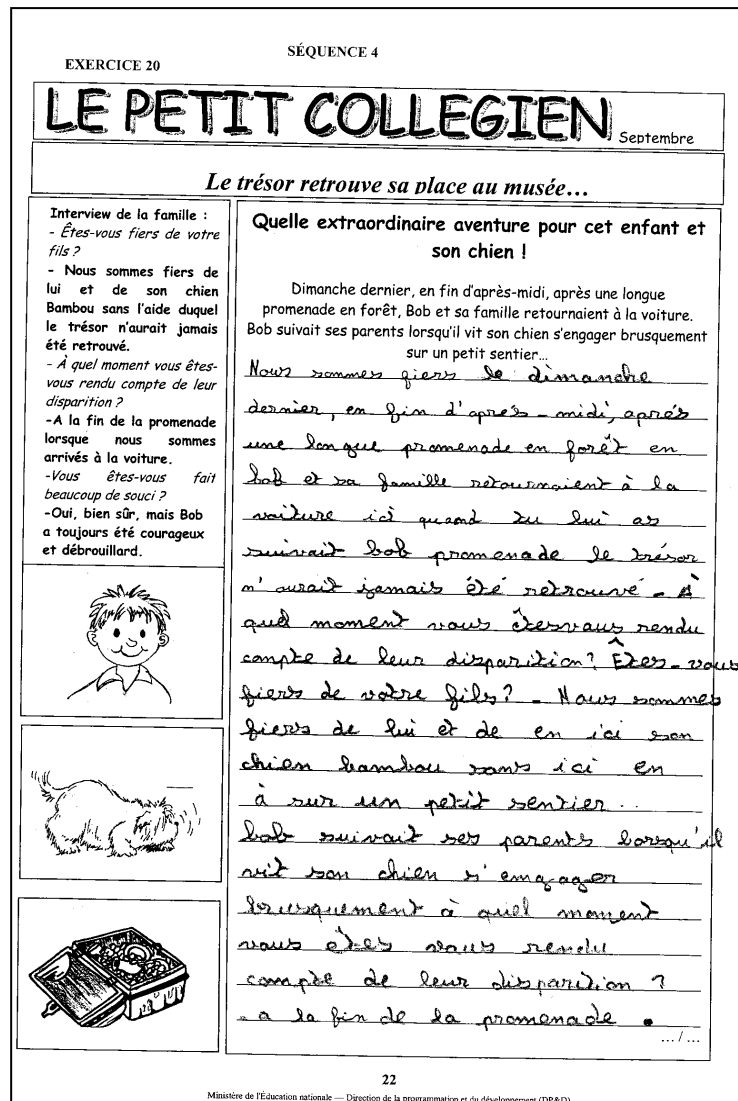 SÉQUENCE 4
EXERCICE 20
LE PETIT COLLEGIEN
Septembre
Le trésor retrouve sa place au musée...
Interview de la famille :
- Êtes-vous fiers de votre
fils ?
- Nous sommes fiers de
lui et de son chien
Bambou sans l'aide duquel
le trésor n'aurait jamais
été retrouvé.
- À quel moment vous êtes-
vous rendu compte de leur
disparition ?
-A la fin de la promenade
lorsque nous sommes
arrivés à la voiture.
-Vous êtes-vous fait
beaucoup de souci ?
-Oui, bien sûr, mais Bob
a toujours été courageux
et débrouillard.
Quelle extraordinaire aventure pour cet enfant et
son chien !
Dimanche dernier, en fin d'après-midi, après une longue
promenade en forêt, Bob et sa famille retournaient à la voiture.
Bob suivait ses parents lorsqu'il vit son chien s'engager brusquement
sur un petit sentier...
Nous sommes fiers le dimanche
dernier, en fin d'après-midi, aprés
une longue promenade en forêt en
bob et sa famille retournaient à la
voiture ici quand tu lui as
suivait bob promenade le trésor
n'aurait jamais été retrouvé - À
quel moment vous êtesvous rendu
compte de leur disparition? Êtes-vous
fiers de votre fils? - Nous sommes
fiers de lui et de en ici son
chien bambou sans ici en
à sur un petit sentier ..
bob suivait ses parents lorsqu'il
vit son chien s'engager
brusquement à quel moment
vous êtes vous rendu
compte de leur disparition ?
- a la fin de la promenade .
.../...
22
Ministère de l'Éducation nationale — Direction de la programmation et du développement (DP&D)